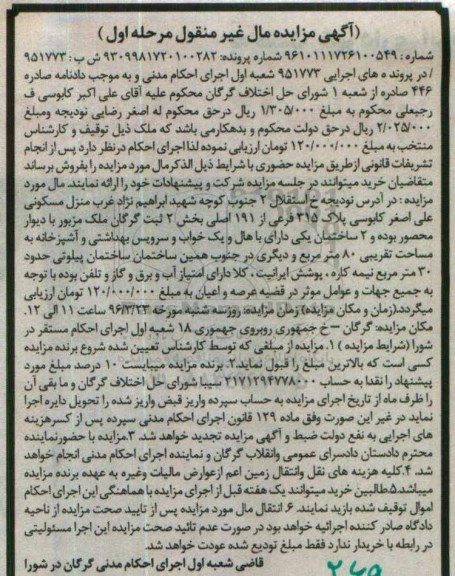 (آگهی مزایده مال غیر منقول مرحله اول)
شماره: ۹۶۱۰۱۱۱۷۲۶۱۰۰۵۴۹ شماره پرونده: ۹۳۰۹۹۸۱۷۲۰۱۰۰۲۸۲ ش ب: ۹۵۱۷۷۳
/در پرونده های اجرایی ۹۵۱۷۷۳ شعبه اول اجرای احکام مدنی و به موجب دادنامه صادره
۴۴۶ صادره از شعبه ۱ شورای حل اختلاف گرگان محکوم علیه آقای علی اکبر کابوسی ف
رجبعلی محکوم به مبلغ ۱/۳۰۵/۰۰۰ ریال درحق محکوم له اصغر رضایی نودیجه ومبلغ
۲/۰۲۵/۰۰۰ ریال درحق دولت محکوم و بدهکارمی باشد که ملک ذیل توقیف و کارشناس
منتخب به مبلغ ۱۲۰/۰۰۰/۰۰۰ تومان ارزیابی نموده لذا اجرای احکام درنظر دارد پس از انجام
تشریفات قانونی ازطریق مزایده حضوری با شرایط ذیل الذکرمال مورد مزایده را بفروش برساند
متقاضیان خرید میتوانند در جلسه مزایده شرکت و پیشنهادات خود را ارائه نمایند. مال مورد
مزایده: در آدرس نودیجه خ استقلال ۲ جنوب کوچه شهید ابراهیم نژاد غرب منزل مسکونی
علی اصغر کابوسی پلاک ۳۱۵ فرعی از ۱۹۱ اصلی بخش ۲ ثبت گرگان ملک مزبور با دیوار
محصور بوده و ۲ ساختمان یکی دارای با هال و یک خواب و سرویس بهداشتی و آشپزخانه به
مساحت تقریبی ۸۰ متر مربع و دیگری در جنوب همین ساختمان ساختمان پیلوتی حدود
۳۰ متر مربع نیمه کاره، پوشش ایرانیت، کلا دارای امتیاز آب و برق و گاز و تلفن بوده با توجه
به جمیع جهات و عوامل موثر در قضیه عرصه و اعیان به مبلغ ۱۲۰/۰۰۰/۰۰۰ تومان ارزیابی
میگردد.(زمان و مکان مزایده) زمان مزایده: روزسه شنبه مورخه ۹۶/۳/۲۳ ساعت ۱۱ الی ۱۲.
مکان مزایده: گرگان – خ جمهوری روبروی جهموری ۱۸ شعبه اول اجرای احکام مستقر در
شورا (شرایط مزایده) ۱. مزایده از مبلغی که توسط کارشناس تعیین شده شروع برنده مزایده
کسی است که بالاترین مبلغ را قبول نماید.۲. برنده مزایده میبایست ۱۰ درصد مبلغ مورد
پیشنهاد را نقدا به حساب ۲۱۷۱۲۹۴۷۷۸۰۰۰ سیبا شورای حل اختلاف گرگان و ما بقی آن
را ظرف ماه از تاریخ اجرای مزایده به حساب سپرده واریز قبض واریز شده را تحویل دایره اجرا
نماید در غیر این صورت وفق ماده ۱۲۹ قانون اجرای احکام مدنی سپرده پس از کسرهزینه
های اجرایی به نفع دولت ضبط و آگهی مزایده تجدید خواهد شد. ۳.مزایده با حضورنماینده
محترم دادستان دادسرای عمومی وانقلاب گرگان و نماینده اجرای احکام مدنی انجام خواهد
شد. ۴.کلیه هزینه های نقل وانتقال زمین اعم ازعوارض مالیات وغیره به عهده برنده مزایده
میباشد.۵.طالبین خرید میتوانند یک هفته قبل از اجرای مزایده با هماهنگی این اجرای احکام
اموال توقیف شده بازید نمایند. ۶. انتقال مال مورد مزایده پس از تایید صحت مزایده از ناحیه
دادگاه صادر کننده اجرائیه خواهد بود در صورت عدم تائید صحت مزایده این اجرا مسئولیتی
در رابطه با خریدار ندارد فقط مبلغ تودیع شده عودت خواهد شد.
قاضی شعبه اول اجرای احکام مدنی گرگان در شورا